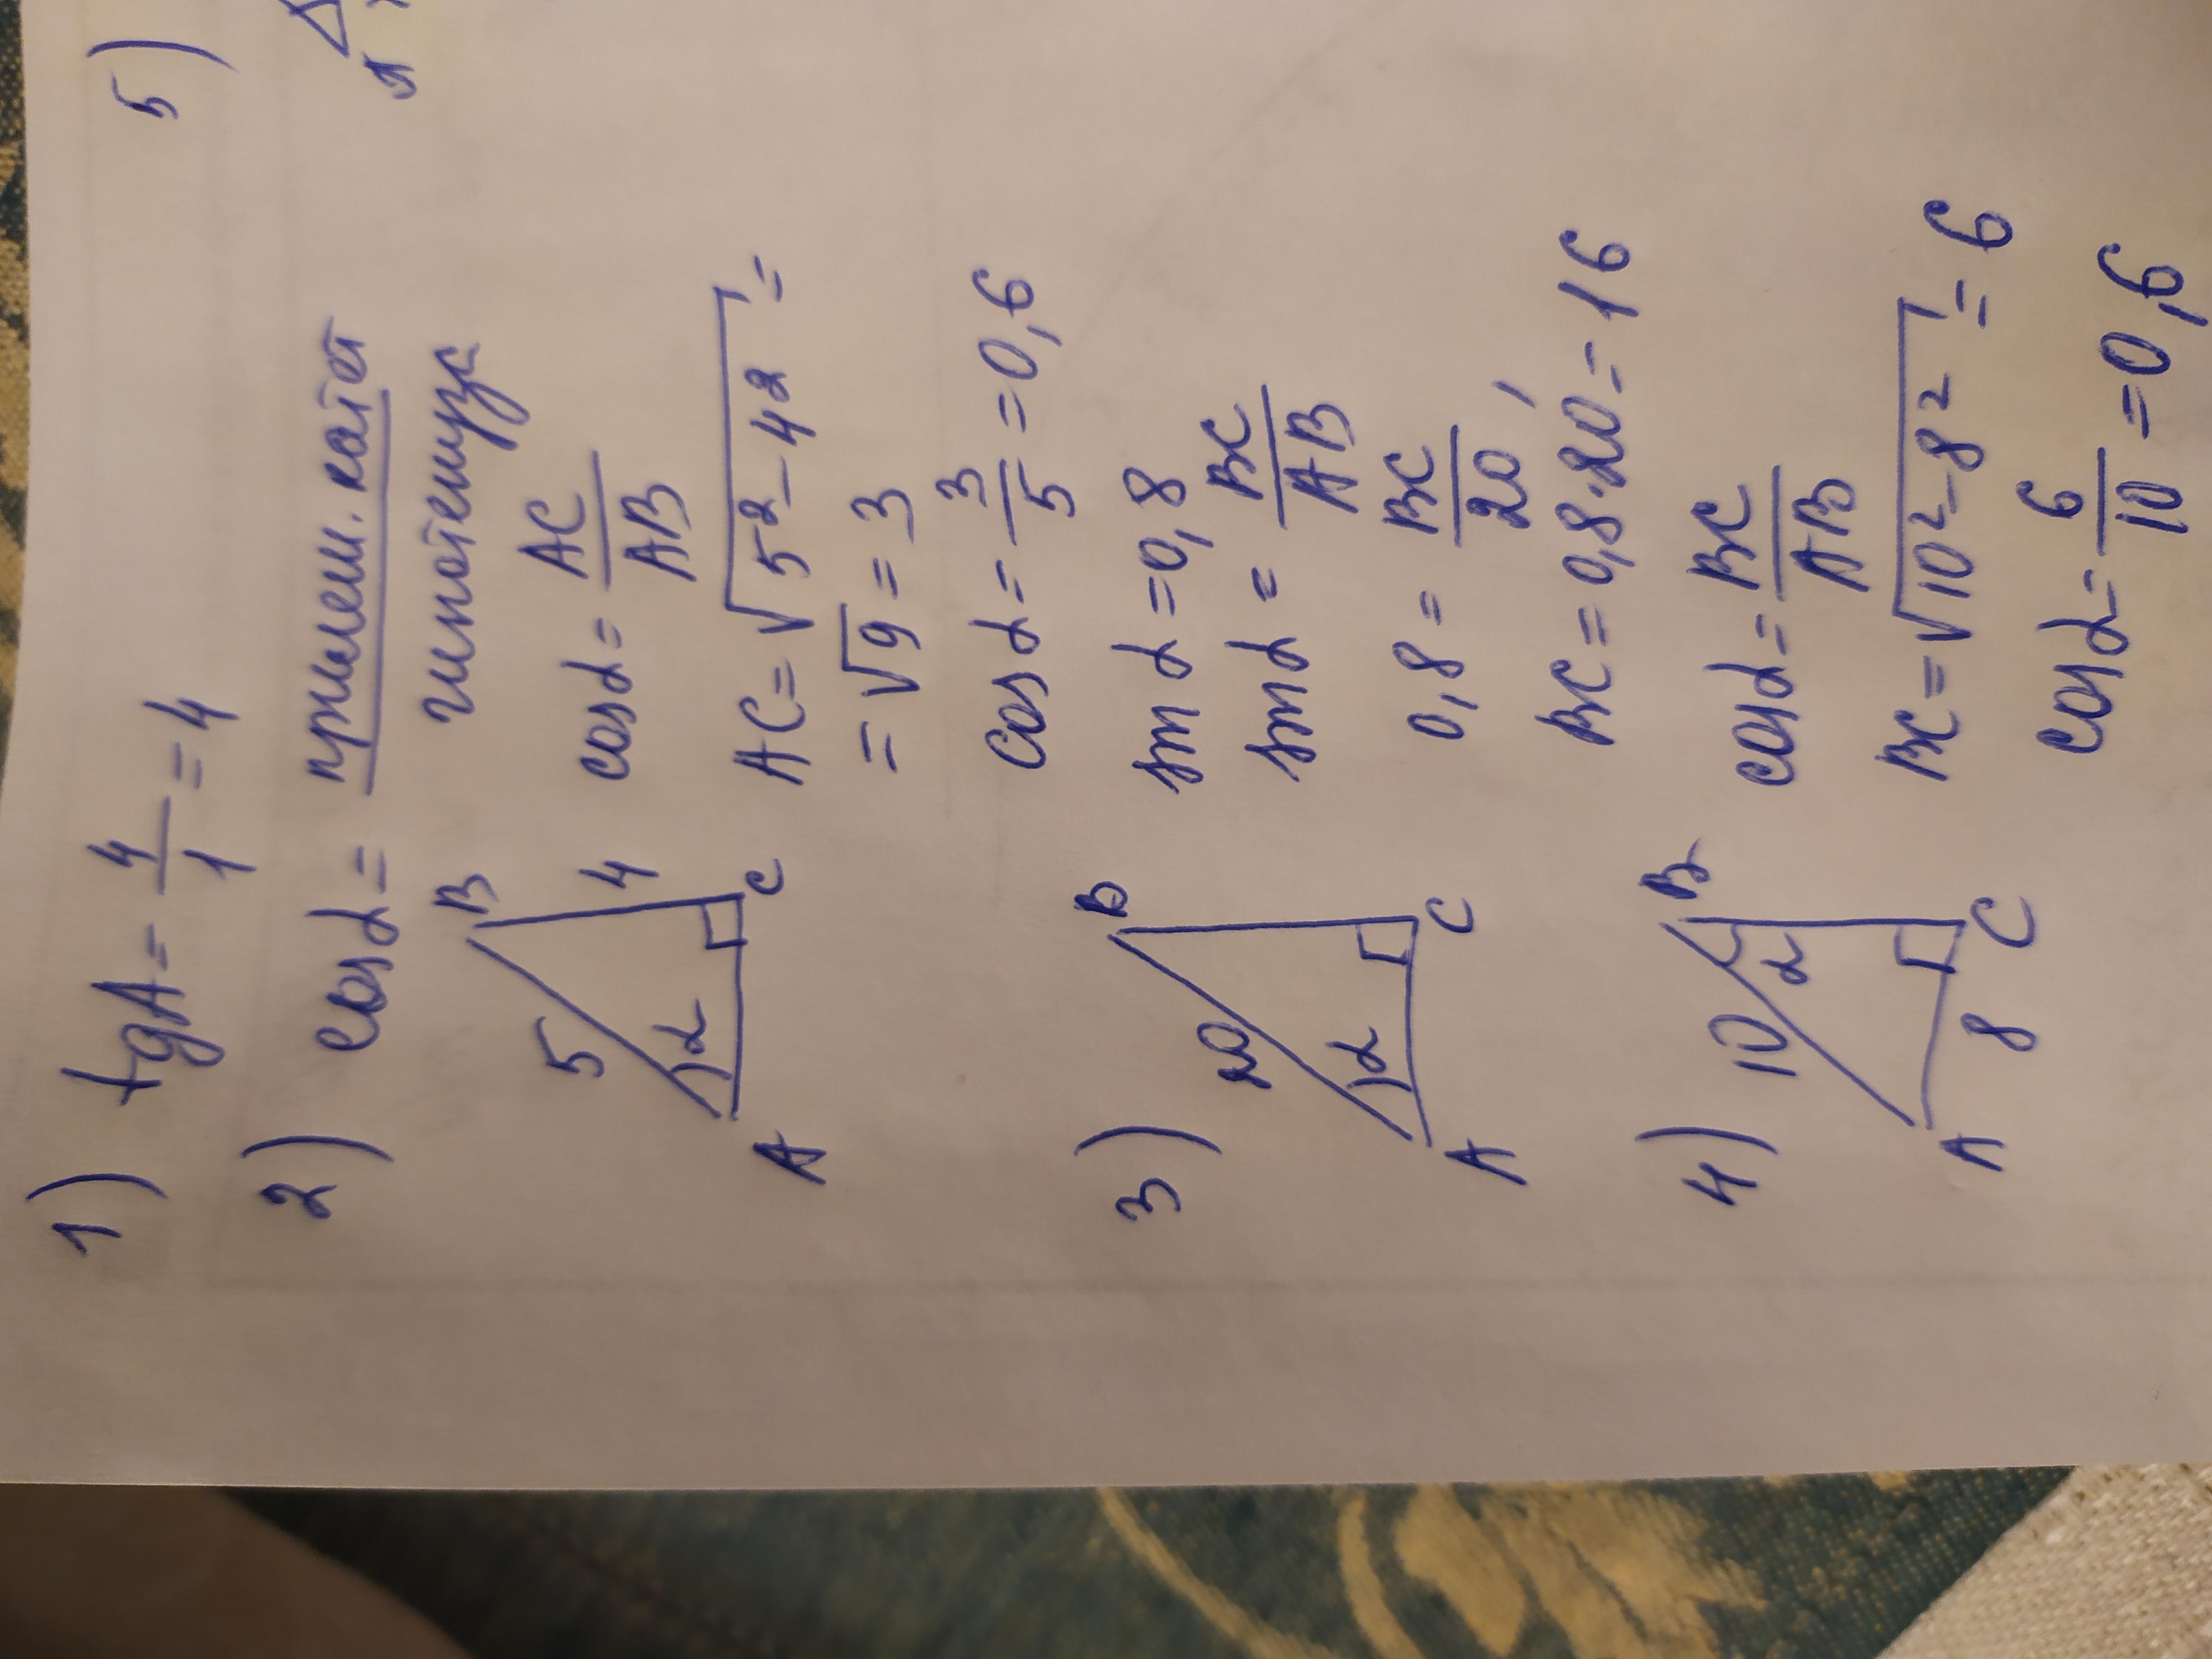 1) tgA = 4/1 = 4
2) cosα = прилеш. катет / гипотенуза
B
5
4
α
A
C
cosα = AC/AB
AC = √5² - 4² =
= √9 = 3
cosα = 3/5 = 0,6
3)
B
20
α
A
C
sinα = 0,8
sinα = BC/AB
0,8 = BC/20,
BC = 0,8·20 = 16
4)
B
10
α
A
8
C
cosα = BC/AB
BC = √10² - 8² = 6
cosα = 6/10 = 0,6
5)